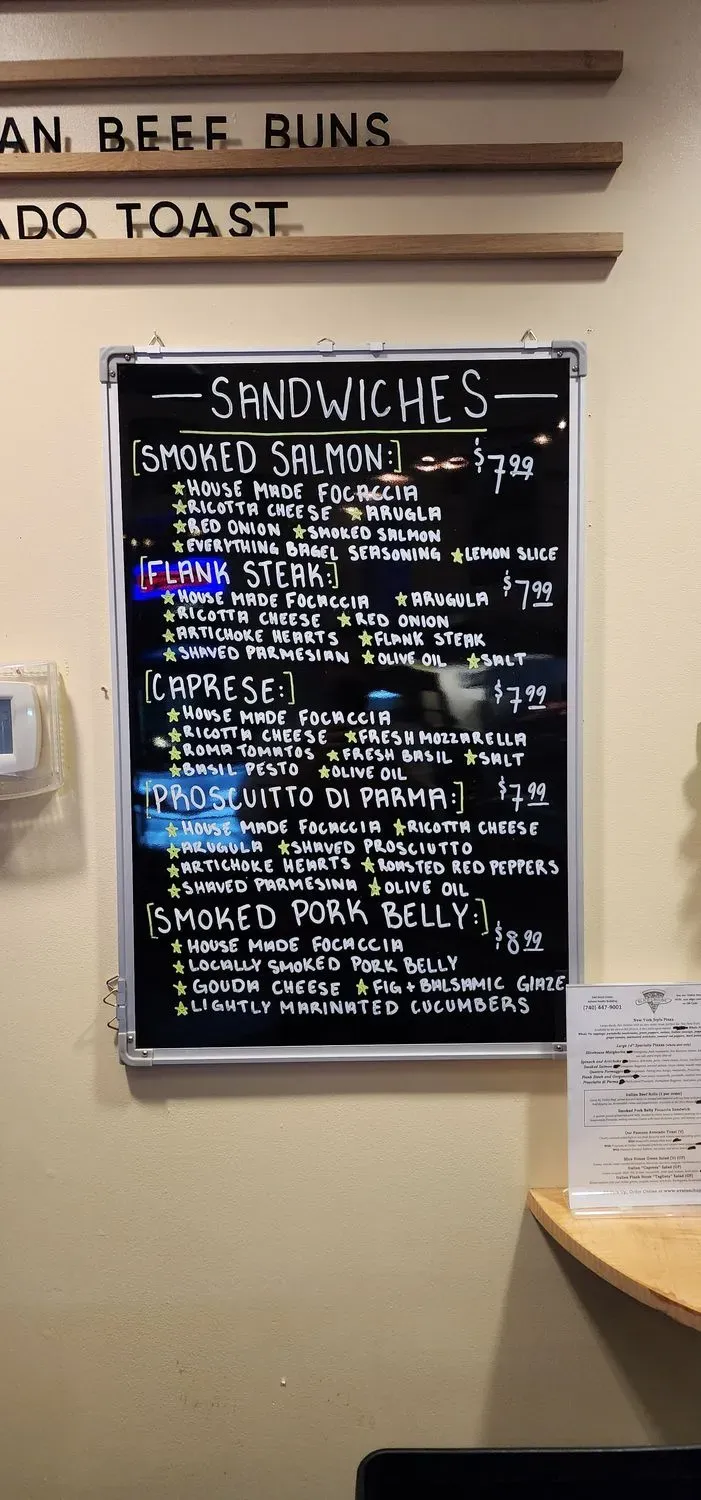 AN BEEF BUNS
ADO TOAST
SANDWICHES
[SMOKED SALMON:] $7.99
HOUSE MADE FOCACCIA
RICOTTA CHEESE ARUGLA
RED ONION SMOKED SALMON
EVERYTHING BAGEL SEASONING LEMON SLICE
[FLANK STEAK:] $7.99
HOUSE MADE FOCACCIA ARUGULA
RICOTTA CHEESE RED ONION
ARTICHOKE HEARTS FLANK STEAK
SHAVED PARMESIAN OLIVE OIL SALT
[CAPRESE:] $7.99
HOUSE MADE FOCACCIA
RICOTTA CHEESE FRESH MOZZARELLA
ROMA TOMATOS FRESH BASIL SALT
BASIL PESTO OLIVE OIL
[PROSCUITTO DI PARMA:] $7.99
HOUSE MADE FOCACCIA RICOTTA CHEESE
ARUGULA SHAVED PROSCIUTTO
ARTICHOKE HEARTS ROASTED RED PEPPERS
SHAVED PARMESINA OLIVE OIL
[SMOKED PORK BELLY:] $8.99
HOUSE MADE FOCACCIA
LOCALLY SMOKED PORK BELLY
GOUDA CHEESE FIG + BALSAMIC GLAZE
LIGHTLY MARINATED CUCUMBERS
(740) 447-9001
New York Style Pizza
Smoked Pork Belly Focaccia Sandwich